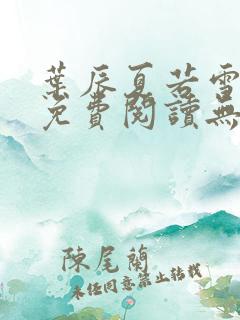 葉辰夏若雪
免費閱讀無
陳尾蘭
未經同意禁止轉載